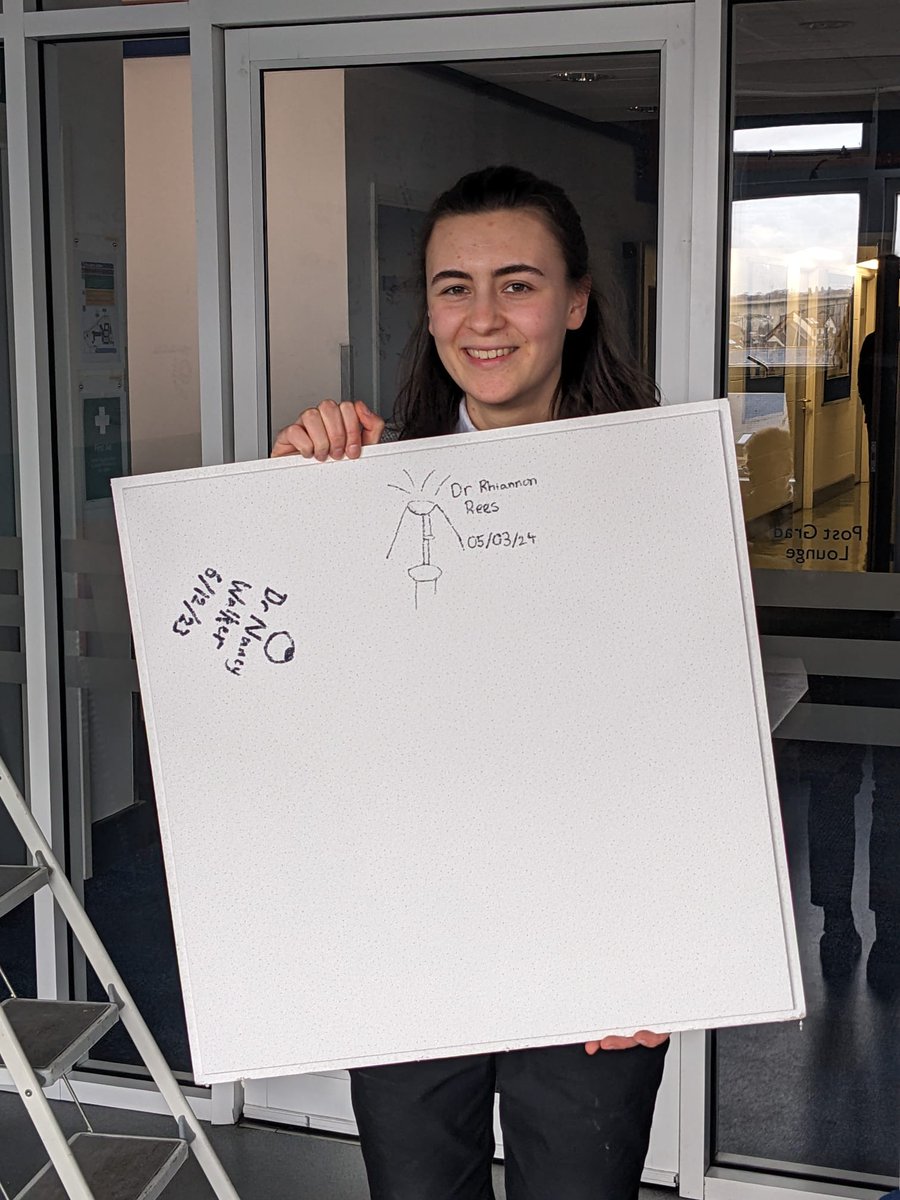 Dr Rhiannon
Rees
05/03/24
Dr Nancy
Walker
6/12/23
Post Grad
Lounge